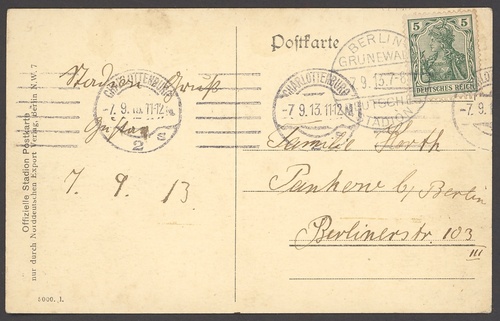 Postkarte
5 5
DEUTSCHES REICH
BERLIN
GRUNEWALD
7.9.13.7-8
DEUTSCHES
STADION
CHARLOTTENBURG
-7.9.13.11-12
2 e
CHARLOTTENBURG
-7.9.13.11-12
-7.9.
Stadion Gruß
Gustav
7. 9. 13.
Familie Harth
Pankow b/ Berlin
Berlinerstr. 103
III
Offizielle Stadion Postkarte
nur durch Norddeutschen Export Verlag, Berlin N.W. 7
5000. I.